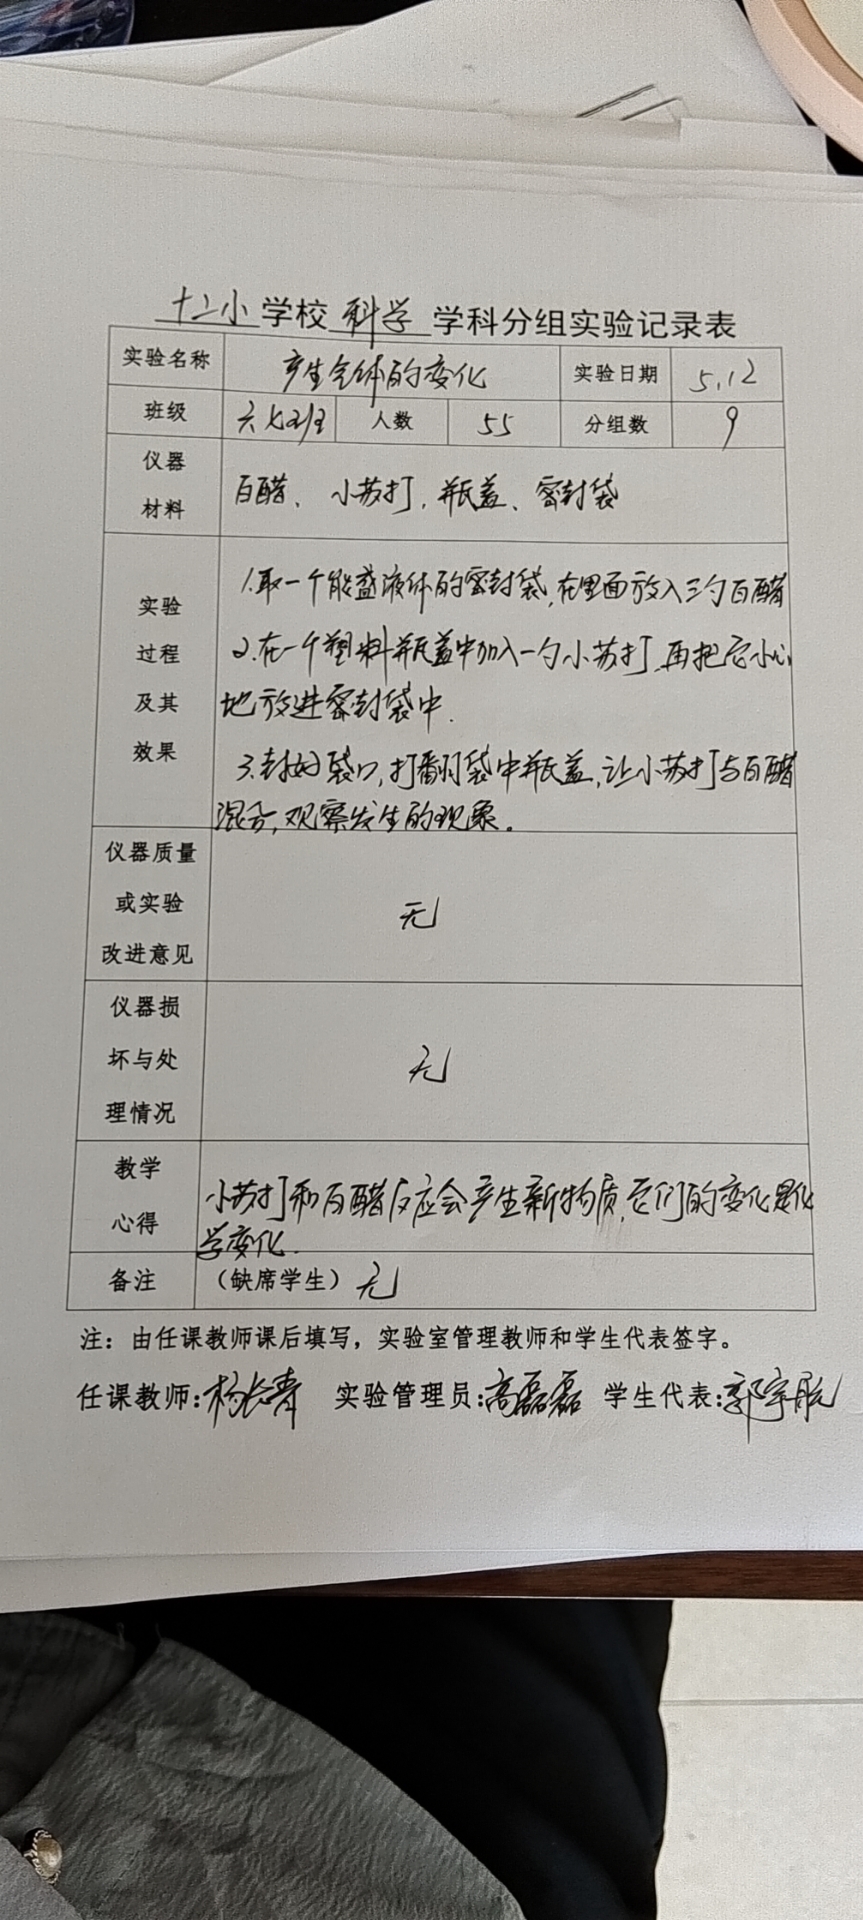 十二小学校 科学 学科分组实验记录表
实验名称 产生气体的变化 实验日期 5.12
班级 六七班 人数 55 分组数 9
仪器
材料
白醋、小苏打,瓶盖、密封袋
实验
过程
及其
效果
1.取一个能盛液体的密封袋,在里面放入三勺白醋
2.在一个塑料瓶盖中加入一勺小苏打,再把它小心
地放进密封袋中.
3.封好袋口,打翻袋中瓶盖,让小苏打与白醋
混合,观察发生的现象。
仪器质量
或实验
改进意见
无
仪器损
坏与处
理情况
无
教学
心得
小苏打和白醋反应会产生新物质,它们的变化是化
学变化.
备注 (缺席学生) 无
注:由任课教师课后填写,实验室管理教师和学生代表签字。
任课教师:杨长青 实验管理员:高磊磊 学生代表:郭宇航